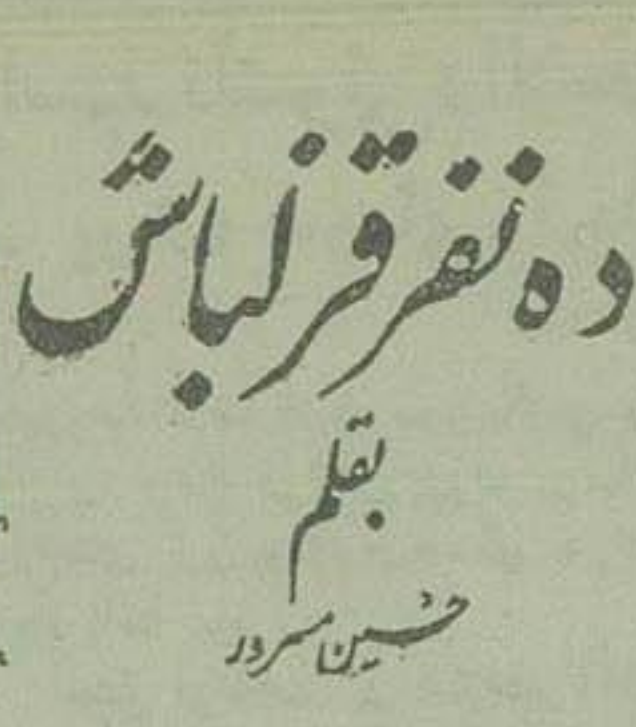 ده نفر قزلباش
بقلم
حسین مسرور